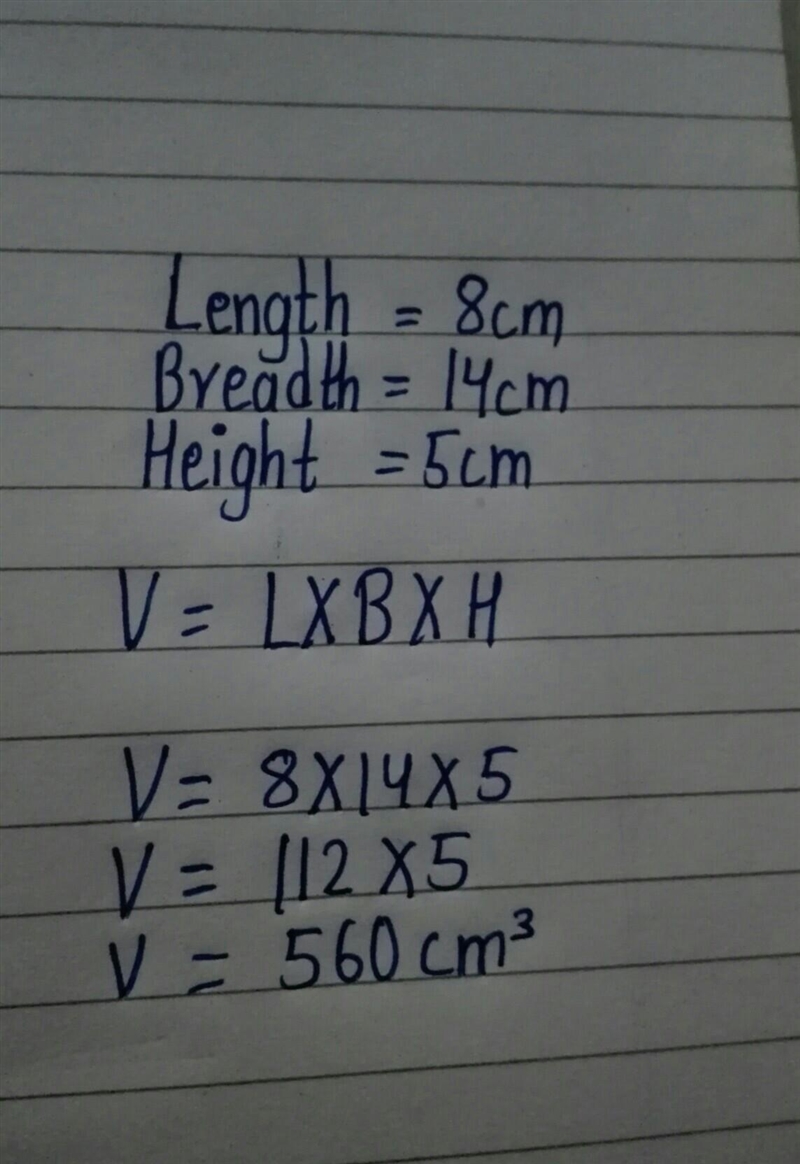 Length = 8cm
Breadth = 14cm
Height = 5cm
V = LXBXH
V = 8X14X5
V = 112X5
V = 560 cm³